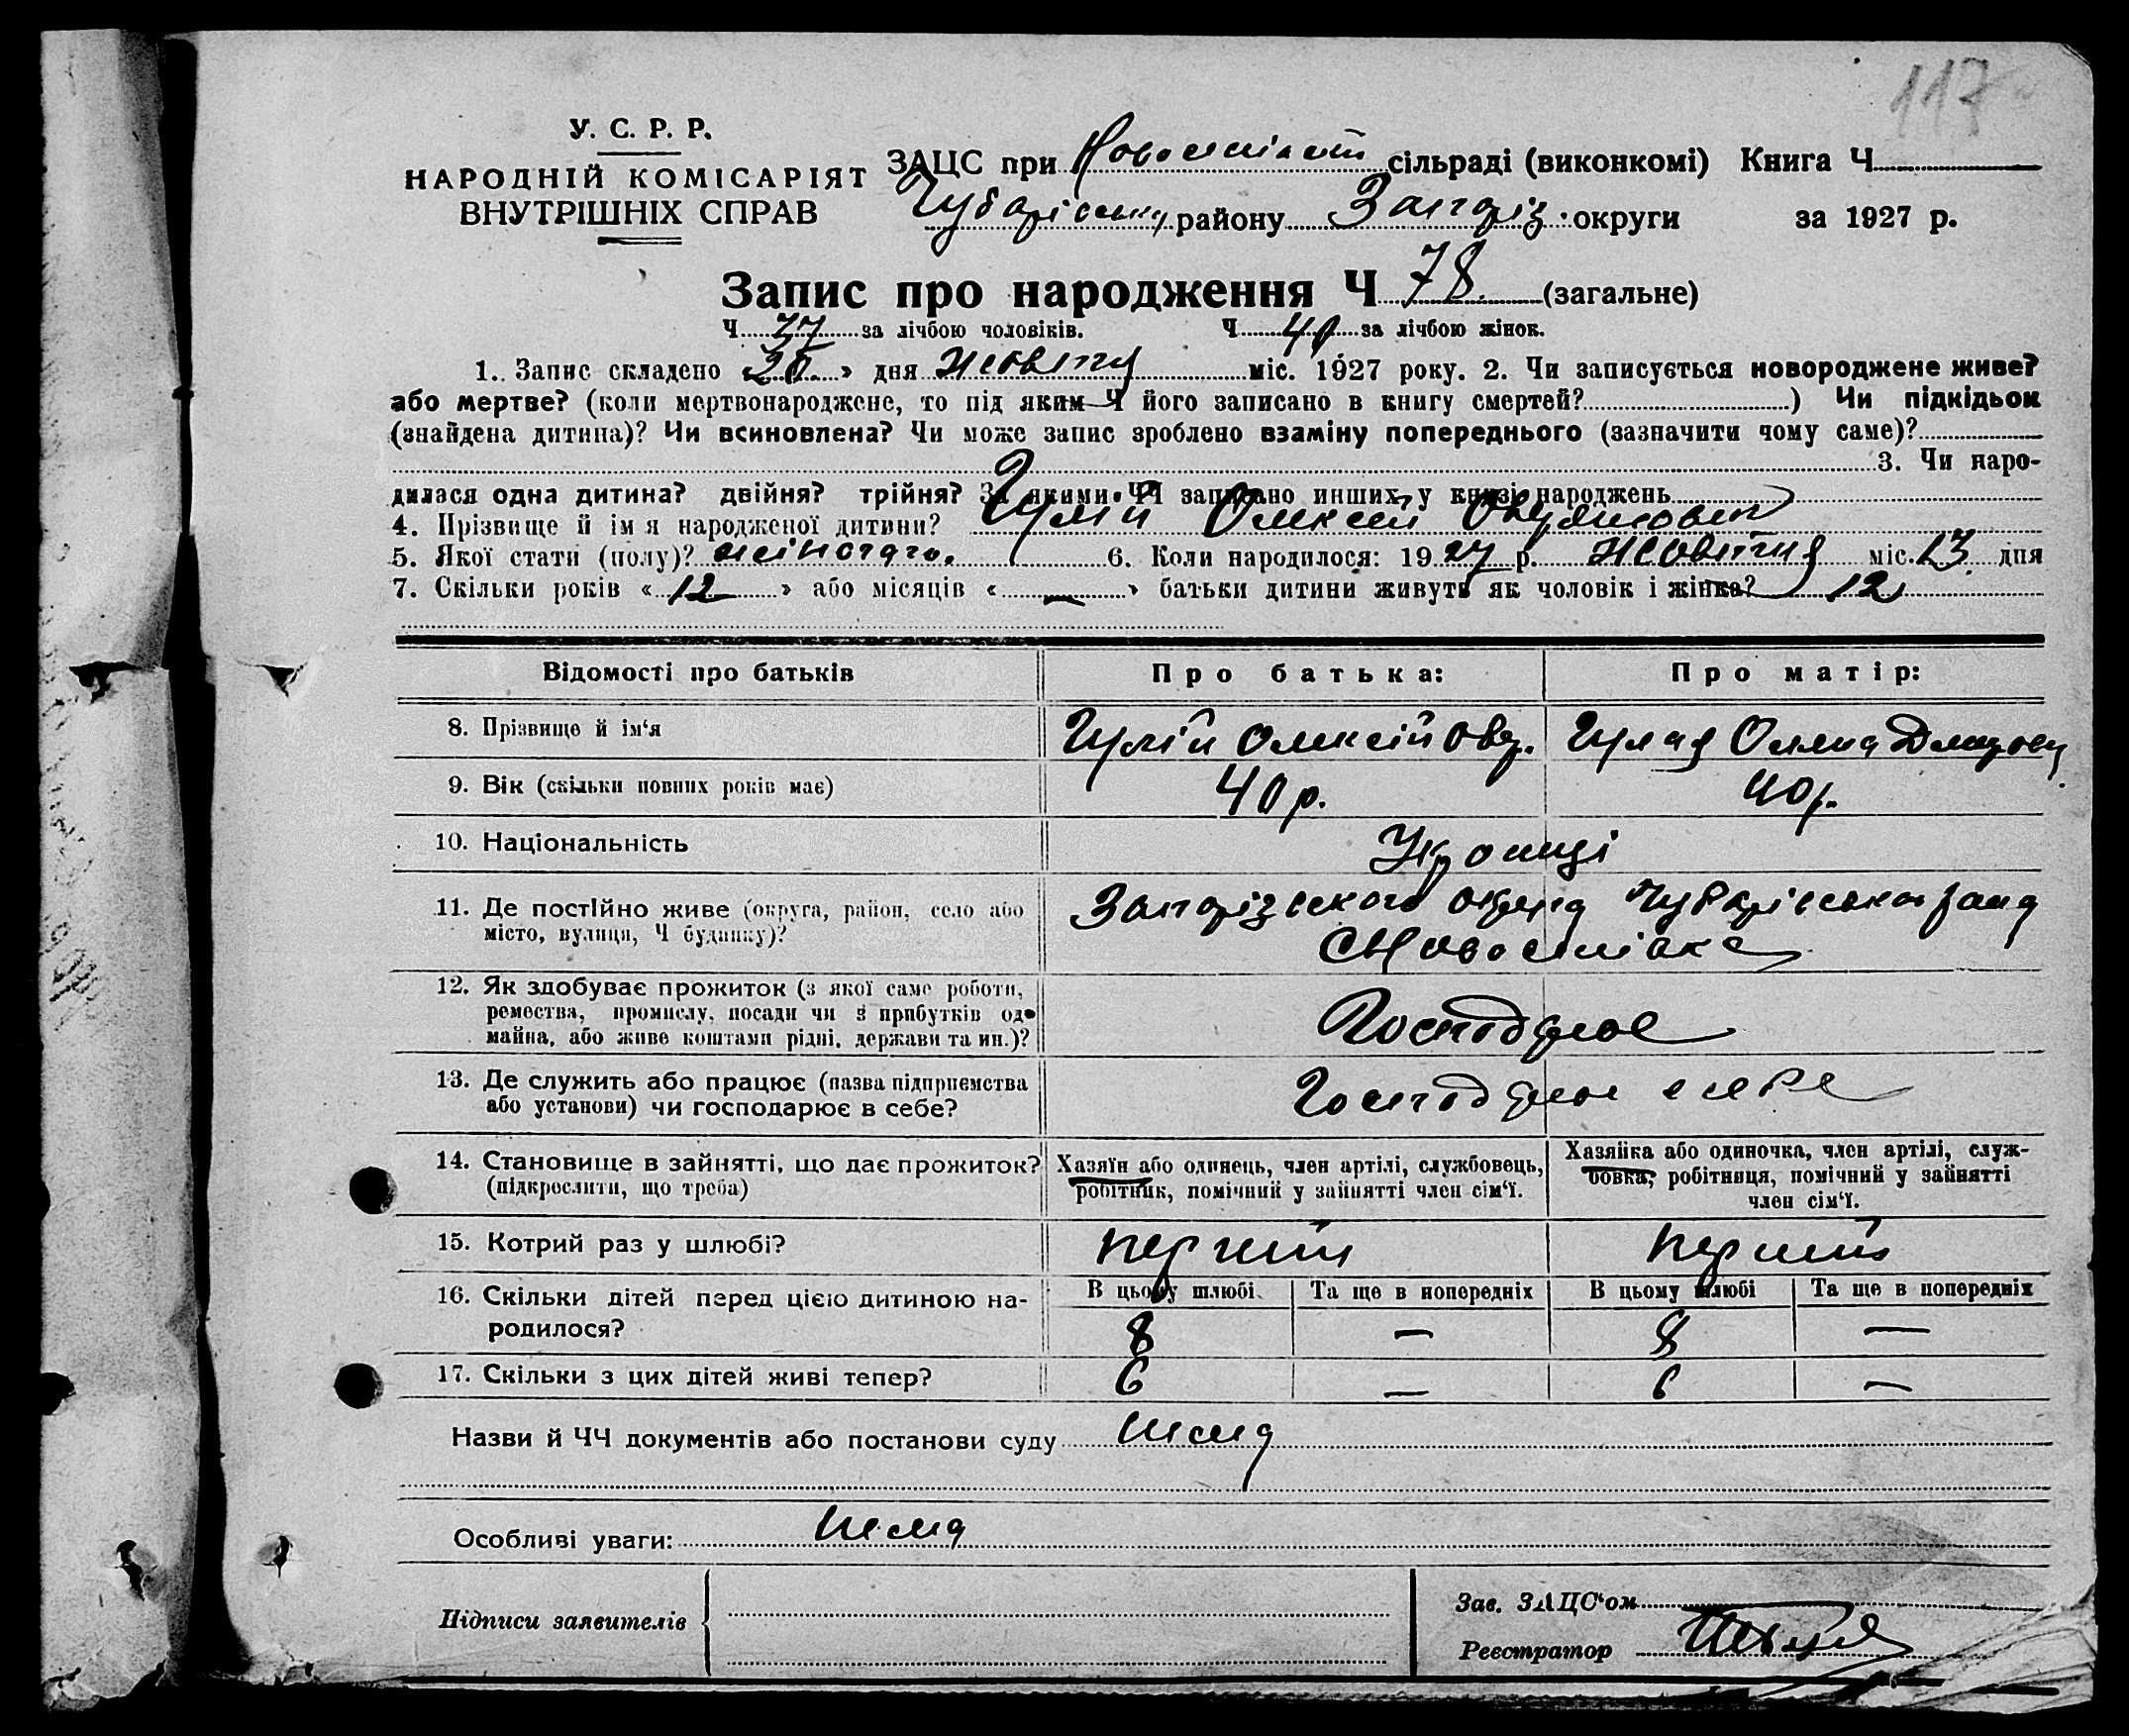 117
У. С. Р. Р.
НАРОДНІЙ КОМІСАРІЯТ
ВНУТРІШНІХ СПРАВ
ЗАЦС при сільраді (виконкомі) Книга Ч
району Запоріз. округи за 1927 р.
Запис про народження Ч 78 (загальне)
Ч 37 за лічбою чоловіків. Ч за лічбою жінок.
1. Запис складено « 20 » дня жовтня міс. 1927 року. 2. Чи записується новороджене живе?
або мертве? (коли мертвонароджене, то під яким Ч його записано в книгу смертей?) Чи підкідьок
(знайдена дитина)? Чи всиновлена? Чи може запис зроблено взаміну попереднього (зазначити чому саме)?
3. Чи наро-
дилася одна дитина? двійня? трійня? За якими ЧЧ записано инших у книзі народжень
4. Прізвище й ім я народженої дитини? Олексій
5. Якої стати (полу)? 6. Коли народилося: 1927 р. жовтня міс. 13 дня
7. Скільки років « 12 » або місяців « — » батьки дитини живуть як чоловік і жінка? 12
Відомості про батьків
Про батька:
Про матір:
8. Прізвище й ім‘я
Олексій
9. Вік (скільки повних років має)
40 р.
40 р.
10. Національність
11. Де постійно живе (округа, район, село або
місто, вулиця, Ч будинку)?
Запорізького округа району
с Новоселівка
12. Як здобуває прожиток (з якої саме роботи,
ремества, промислу, посади чи з прибутків од
майна, або живе коштами рідні, держави та ин.)?
13. Де служить або працює (назва підприемства
або установи) чи господарює в себе?
14. Становище в зайнятті, що дає прожиток?
(підкреслити, що треба)
Хазяїн або одинець, член артілі, службовець,
робітник, помічний у зайнятті член сім‘ї.
Хазяйка або одиночка, член артілі, служ-
бовка, робітниця, помічний у зайнятті
член сім‘ї.
15. Котрий раз у шлюбі?
перший
перший
16. Скільки дітей перед цією дитиною на-
родилося?
В цьому шлюбі
Та ще в попередніх
В цьому шлюбі
Та ще в попередніх
8 — 8 —
17. Скільки з цих дітей живі тепер?
6 — 6 —
Назви й ЧЧ документів або постанови суду нема
Особливі уваги: нема
Підписи заявителів
Зав. ЗАЦС‘ом
Реєстратор